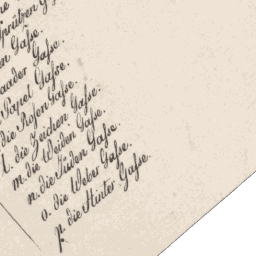 Spritzen G
en Gaſse.
aader Gaſse
Papel Gaſse.
die Roſen Gaſse.
l. die Zeichen Gaſse.
m. die Weiden Gaſse.
n. die Juden Gaſse.
o. die Weber Gaſse.
p. die Hinter Gaſse.